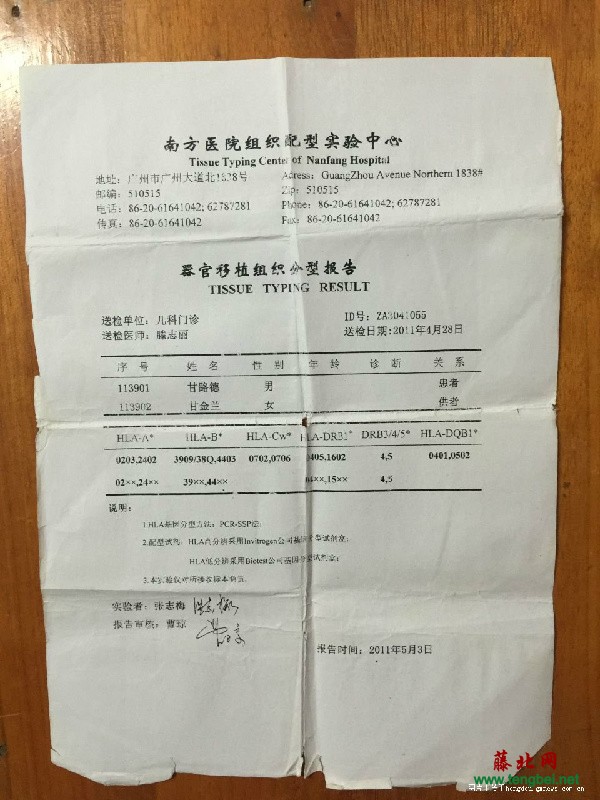 南方医院组织配型实验中心
Tissue Typing Center of Nanfang Hospital
地址：广州市广州大道北1838号 Adress: GuangZhou Avenue Northern 1838#
邮编：510515 Zip: 510515
电话：86-20-61641042; 62787281 Phone: 86-20-61641042; 62787281
传真：86-20-61641042 Fax: 86-20-61641042
器官移植组织分型报告
TISSUE TYPING RESULT
送检单位：儿科门诊 ID号：ZA3041055
送检医师：滕志丽 送检日期：2011年4月28日
序 号 姓 名 性 别 年 龄 诊 断 关 系
113901 甘路德 男 患者
113902 甘金兰 女 供者
HLA-A* HLA-B* HLA-Cw* HLA-DRB1* DRB3/4/5* HLA-DQB1*
0203,2402 3909/38Q,4403 0702,0706 0405,1602 4,5 0401,0502
02××,24×× 39××,44×× 04××,15×× 4,5
说明：
1.HLA基因分型方法：PCR-SSP法；
2.配型试剂：HLA高分辨采用Invitrogen公司基因分型试剂盒；
HLA低分辨采用Biotest公司基因分型试剂盒；
3.本实验仅对所接收标本负责。
实验者：张志梅
报告审核：曹琼
报告时间：2011年5月3日
藤北网
www.tengbei.net